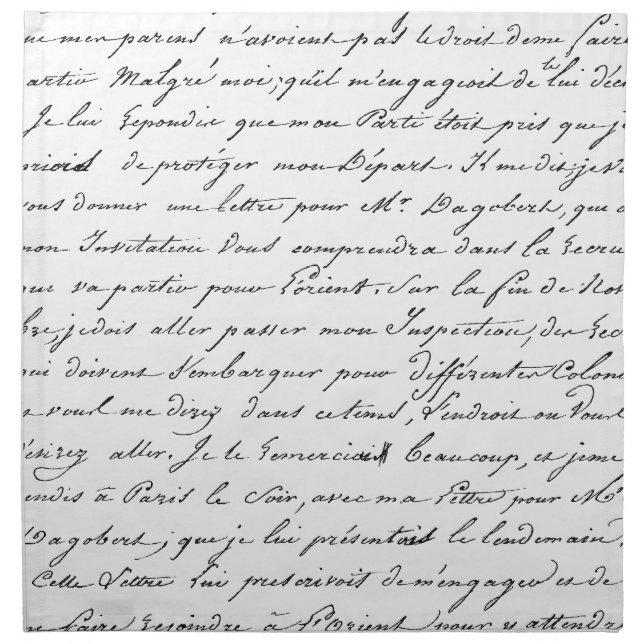 que mer parens n'avoient pas le droit de me faire
partir Malgré moi; qu'il m'engageoit de te lui déc
Je lui Repondis que mon Parti étoit pris que je
de protéger mon Départ. Il me dit; je v
vous donner une lettre pour Mr. Dagobert, que
mon Invitation Vous comprendra dans la Recru
qui va partir pour L'orient. Sur la fin de Nov
bre, je dois aller passer mon Inspection, des Rec
qui doivent s'embarquer pour différenter Colon
vour me direz dans ce tems, L'endroit ou Vour
désirez aller. Je le Remerciois beaucoup, et je me
rendis à Paris le Soir, avec ma Lettre pour Mr
Dagobert; que je lui présentois le lendemain.
Cette Lettre Lui prescrivoit de m'engager et de
me faire Rejoindre à L'Orient pour y attendre